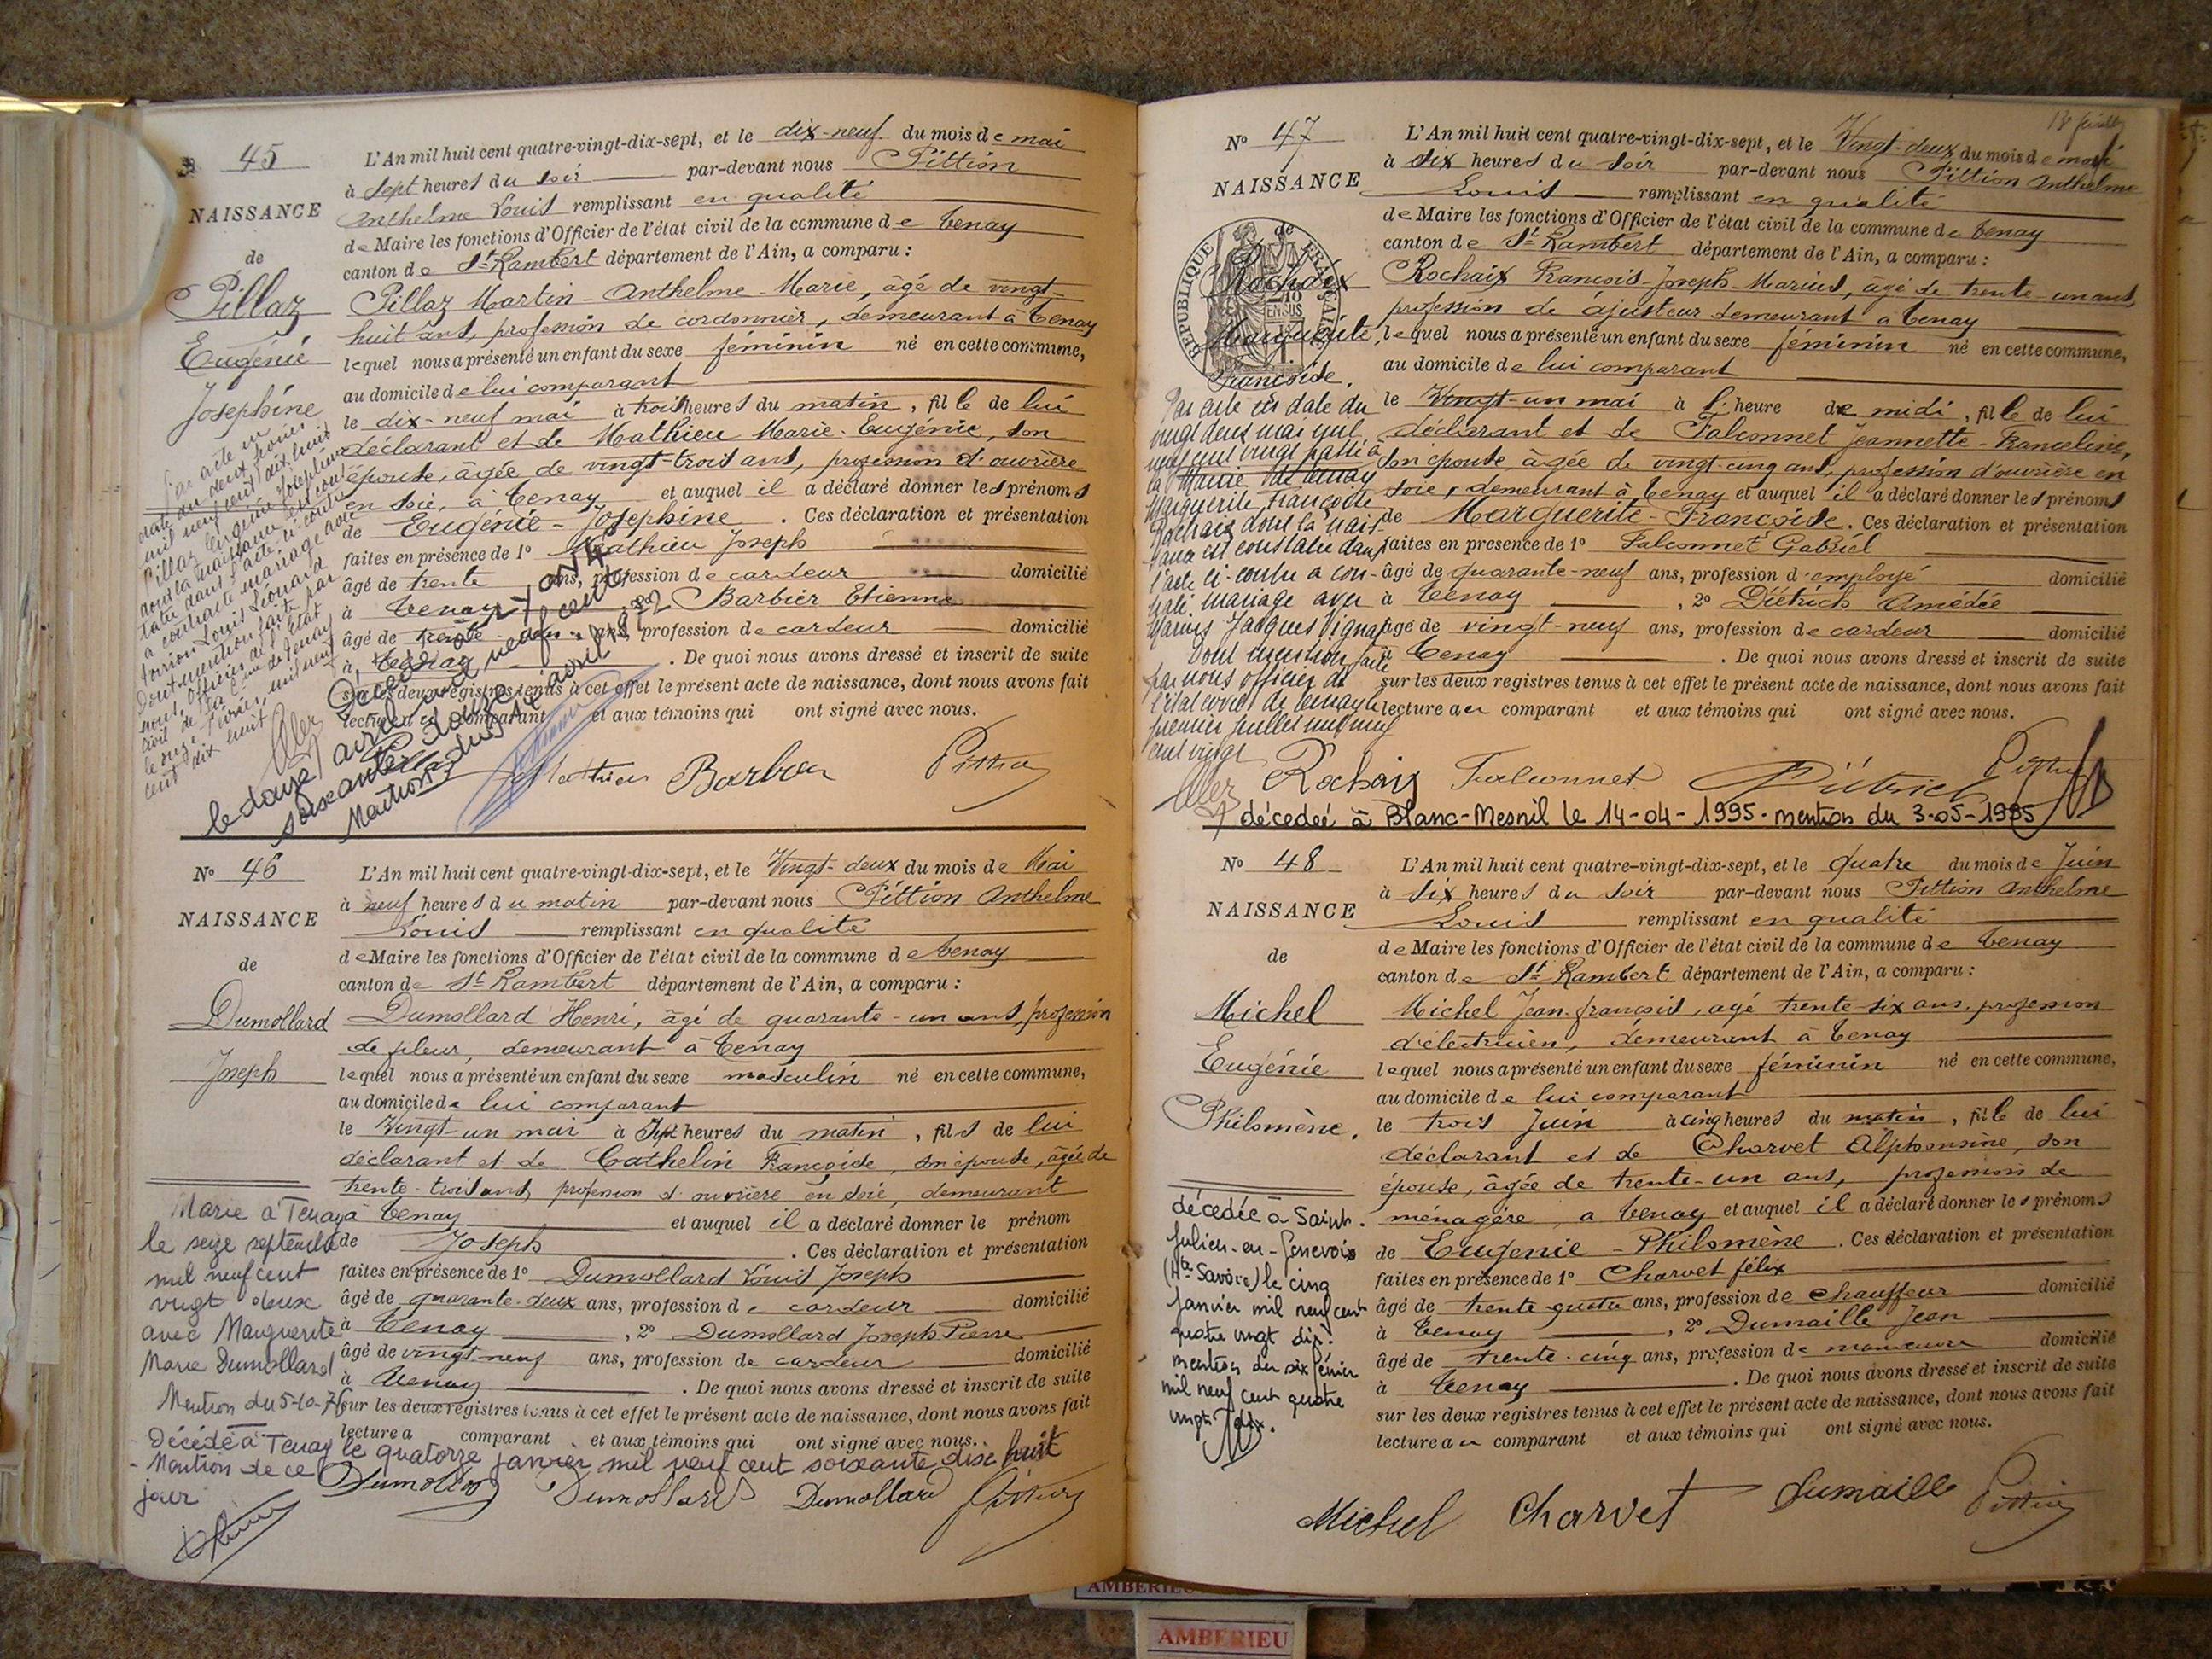 45
NAISSANCE
de
Pillaz
Eugénie
Joséphine
L'An mil huit cent quatre-vingt-dix-sept, et le dix-neuf du mois de mai
à sept heures du soir par-devant nous Pittion
Anthelme Louis remplissant en qualité
de Maire les fonctions d'Officier de l'état civil de la commune de Tenay
canton de St Rambert département de l'Ain, a comparu :
Pillaz Martin-Anthelme-Marie, âgé de vingt-
huit ans, profession de cordonnier, demeurant à Tenay
lequel nous a présenté un enfant du sexe féminin né en cette commune,
au domicile de lui comparant
le dix-neuf mai à trois heures du matin, fille de lui
déclarant et de Mathieu Marie-Eugénie, son
épouse, âgée de vingt-trois ans, profession d'ouvrière
en soie, à Tenay et auquel il a déclaré donner les prénoms
de Eugénie-Joséphine. Ces déclaration et présentation
faites en présence de 1° Mathieu Joseph
âgé de trente ans, profession de cardeur domicilié
à Tenay Barbier Etienne
âgé de trente-deux ans, profession de cardeur domicilié
à Tenay. De quoi nous avons dressé et inscrit de suite
sur les deux registres tenus à cet effet le présent acte de naissance, dont nous avons fait
lecture au comparant et aux témoins qui ont signé avec nous.
Par acte en
date du deux février
mil neuf cent dix huit
Pillaz Eugénie Joséphine
dont la naissance est cons-
tatée dans l'acte ci-contre
a contracté mariage avec
Louis Léonard
Dont mention faite par
nous, Officier de l'Etat
civil de la Cne de Tenay
le onze février, mil neuf
cent dix huit
le douze avril mil neuf cent
soixante
Mention du douze avril
Mathieu Barbier Pittion
N° 46
NAISSANCE
de
Dumollard
Joseph
L'An mil huit cent quatre-vingt-dix-sept, et le Vingt-deux du mois de Mai
à neuf heures du matin par-devant nous Pittion Anthelme
Louis remplissant en qualité
de Maire les fonctions d'Officier de l'état civil de la commune de Tenay
canton de St Rambert département de l'Ain, a comparu :
Dumollard Henri, âgé de quarante-un ans, profession
de fileur, demeurant à Tenay
lequel nous a présenté un enfant du sexe masculin né en cette commune,
au domicile de lui comparant
le Vingt-un mai à Sept heures du matin, fils de lui
déclarant et de Cathelin Françoise, son épouse, âgée de
trente-trois ans, profession d'ouvrière en soie, demeurant
à Tenay et auquel il a déclaré donner le prénom
de Joseph. Ces déclaration et présentation
faites en présence de 1° Dumollard Louis Joseph
âgé de quarante-deux ans, profession de cardeur domicilié
à Tenay, 2° Dumollard Joseph Pierre
âgé de vingt-neuf ans, profession de cardeur domicilié
à Tenay. De quoi nous avons dressé et inscrit de suite
sur les deux registres tenus à cet effet le présent acte de naissance, dont nous avons fait
lecture a comparant et aux témoins qui ont signé avec nous.
Marié à Tenay
le seize septembre
mil neuf cent
vingt deux
avec Marguerite
Marie Dumollard
Mention du 5-10-76
Décédé à Tenay le quatorze janvier mil neuf cent soixante dix huit
Mention de ce
jour
Dumollard Dumollard Dumollard Pittion
N° 47
NAISSANCE
de
Rochaix
Marguerite
Françoise.
RÉPUBLIQUE FRANÇAISE
L'An mil huit cent quatre-vingt-dix-sept, et le Vingt-deux du mois de mai
à dix heures du soir par-devant nous Pittion Anthelme
Louis remplissant en qualité
de Maire les fonctions d'Officier de l'état civil de la commune de Tenay
canton de St Rambert département de l'Ain, a comparu :
Rochaix François-Joseph-Marius, âgé de trente-un ans,
profession de ajusteur demeurant à Tenay
lequel nous a présenté un enfant du sexe féminin né en cette commune,
au domicile de lui comparant
le Vingt-un mai à heure de midi, fille de lui
déclarant et de Falconnet Jeannette-Franceline,
son épouse, âgée de vingt-cinq ans, profession d'ouvrière en
soie, demeurant à Tenay et auquel il a déclaré donner les prénoms
de Marguerite-Françoise. Ces déclaration et présentation
faites en présence de 1° Falconnet Gabriel
âgé de quarante-neuf ans, profession d'employé domicilié
à Tenay, 2° Diétrich Amédée
âgé de vingt-neuf ans, profession de cardeur domicilié
à Tenay. De quoi nous avons dressé et inscrit de suite
sur les deux registres tenus à cet effet le présent acte de naissance, dont nous avons fait
lecture au comparant et aux témoins qui ont signé avec nous.
Par acte en date du
vingt deux mai mil
neuf cent vingt passé à
la Mairie de Tenay
Marguerite Françoise
Rochaix dont la nais-
sance est constatée dans
l'acte ci-contre a con-
tracté mariage avec
Marius Jacques
Dont mention faite
par nous officier de
l'état civil de Tenay le
premier juillet mil neuf
cent vingt
Rochaix Falconnet Diétrich Pittion
décédée à Blanc-Mesnil le 14-04-1995. mention du 3-05-1995
N° 48
NAISSANCE
de
Michel
Eugénie
Philomène.
L'An mil huit cent quatre-vingt-dix-sept, et le quatre du mois de Juin
à six heures du soir par-devant nous Pittion Anthelme
Louis remplissant en qualité
de Maire les fonctions d'Officier de l'état civil de la commune de Tenay
canton de St Rambert département de l'Ain, a comparu :
Michel Jean-françois, agé trente-six ans, profession
d'électricien, demeurant à Tenay
lequel nous a présenté un enfant du sexe féminin né en cette commune,
au domicile de lui comparant
le trois Juin à cinq heures du matin, fille de lui
déclarant et de Charvet Alphonsine, son
épouse, âgée de trente-un ans, profession de
ménagère, à Tenay et auquel il a déclaré donner les prénoms
de Eugenie-Philomène. Ces déclaration et présentation
faites en présence de 1° Charvet félix
âgé de trente-quatre ans, profession de chauffeur domicilié
à Tenay, 2° Dumaille Jean
âgé de trente-cinq ans, profession de manœuvre domicilié
à Tenay. De quoi nous avons dressé et inscrit de suite
sur les deux registres tenus à cet effet le présent acte de naissance, dont nous avons fait
lecture au comparant et aux témoins qui ont signé avec nous.
décédée à Saint-
Julien-en-Genevois
(Hte Savoie) le cinq
Janvier mil neuf cent
quatre vingt dix.
mention du six février
mil neuf cent quatre
vingt dix.
Michel Charvet Dumaille Pittion
AMBERIEU
AMBERIEU